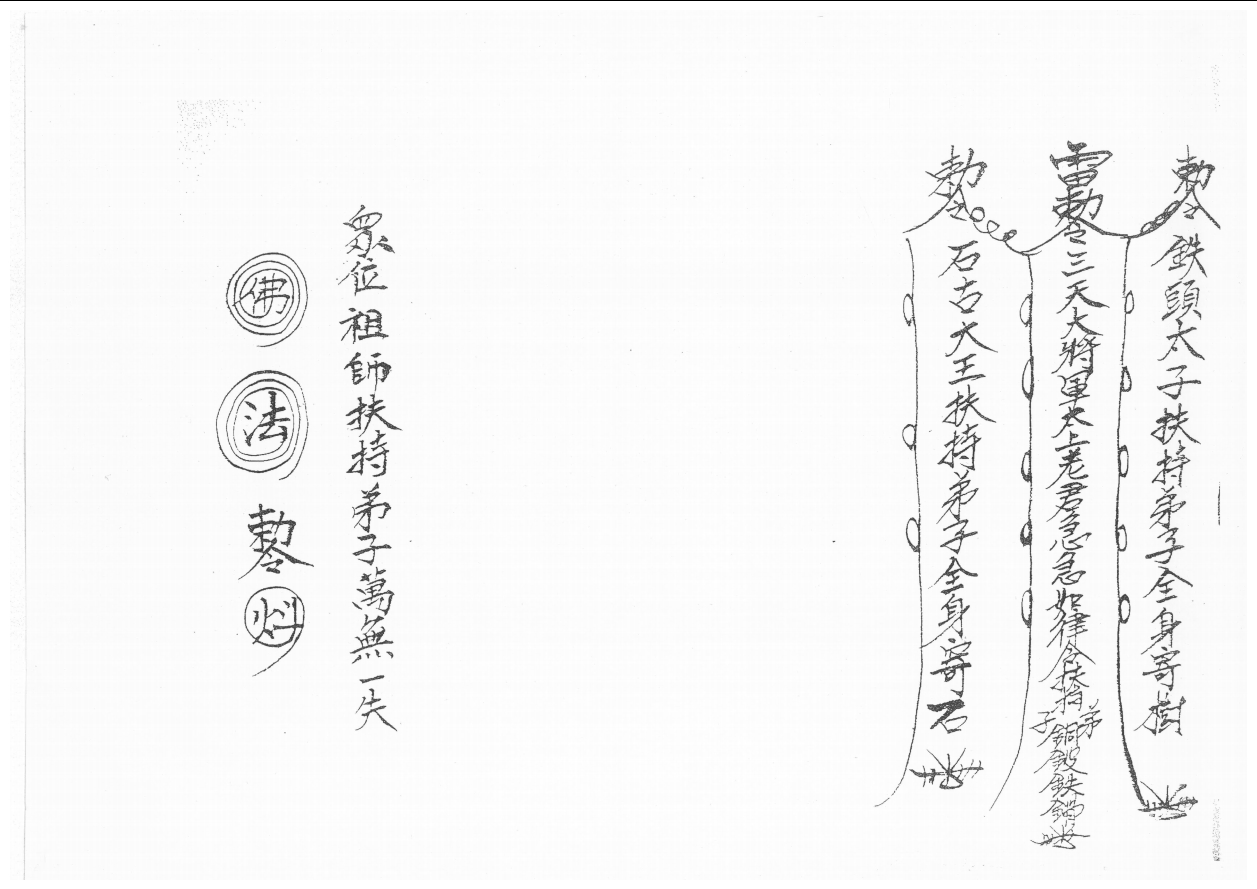 勅令鉄頭太子扶持弟子全身寄樹
雷勅令三天大將軍太上老君急急如律令扶持弟子銅鉄
勅令石古大王扶持弟子全身寄石
眾位祖師扶持弟子萬無一失
佛法勅令